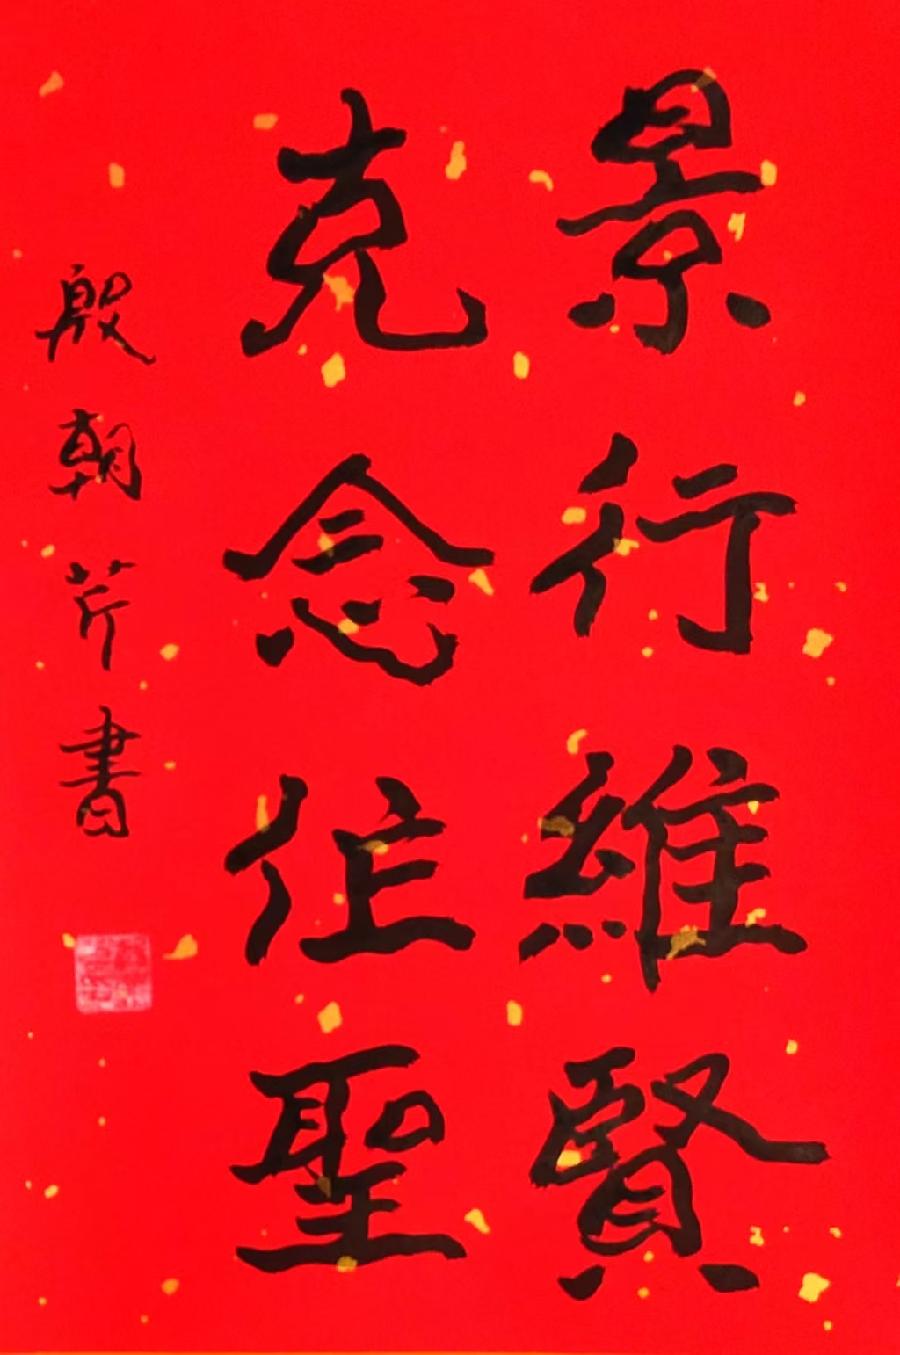 景行維賢
克念作聖
殷朝芹書